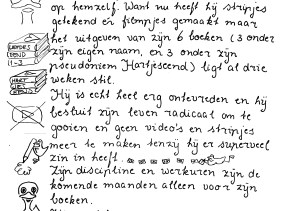 op hemzelf. Want nu heeft hij stripjes
getekend en filmpjes gemaakt maar
het uitgeven van zijn 6 boeken (3 onder
zijn eigen naam, en 3 onder zijn
pseudoniem Hartjescend) ligt al drie
weken stil.
Hij is echt heel erg ontevreden en hij
besluit zijn leven radicaal om te
gooien en geen video's en stripjes
meer te maken tenzij hij er superveel
zin in heeft.
Zijn discipline en werkuren zijn de
komende maanden alleen voor zijn
boeken.
1-3
HART